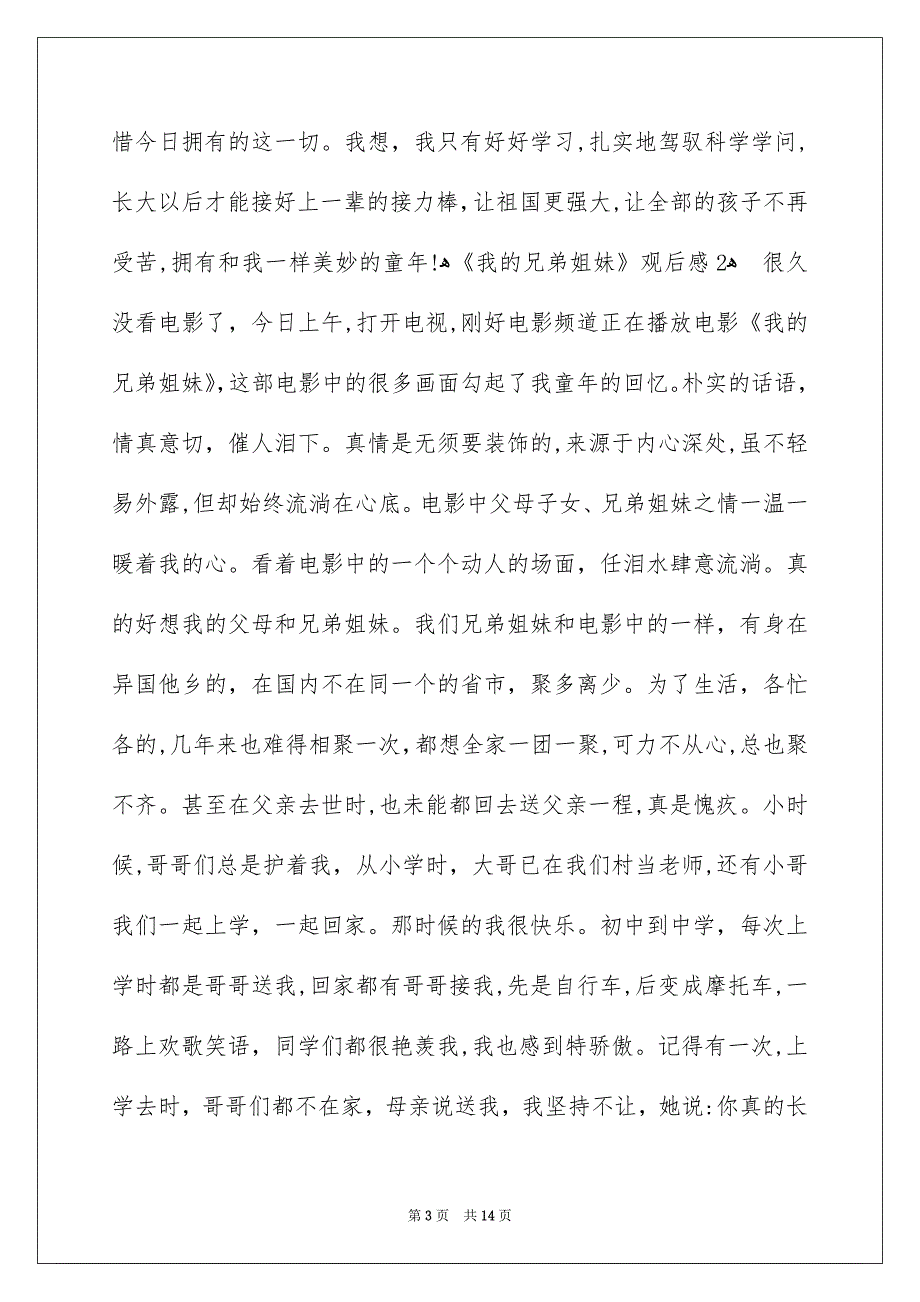 惜今日拥有的这一切。我想，我只有好好学习,扎实地驾驭科学学问,
长大以后才能接好上一辈的接力棒，让祖国更强大,让全部的孩子不再
受苦,拥有和我一样美妙的童年!ﻫ《我的兄弟姐妹》观后感 2ﻫ　很久
没看电影了，今日上午,打开电视,刚好电影频道正在播放电影《我的
兄弟姐妹》,这部电影中的很多画面勾起了我童年的回忆。朴实的话语，
情真意切，催人泪下。真情是无须要装饰的,来源于内心深处,虽不轻
易外露,但却始终流淌在心底。电影中父母子女、兄弟姐妹之情一温一
暖着我的心。看着电影中的一个个动人的场面，任泪水肆意流淌。真
的好想我的父母和兄弟姐妹。我们兄弟姐妹和电影中的一样，有身在
异国他乡的，在国内不在同一个的省市，聚多离少。为了生活，各忙
各的,几年来也难得相聚一次,都想全家一团一聚,可力不从心,总也聚
不齐。甚至在父亲去世时,也未能都回去送父亲一程,真是愧疚。小时
候,哥哥们总是护着我，从小学时，大哥已在我们村当老师,还有小哥
我们一起上学，一起回家。那时候的我很快乐。初中到中学，每次上
学时都是哥哥送我,回家都有哥哥接我,先是自行车,后变成摩托车,一
路上欢歌笑语，同学们都很艳羡我,我也感到特骄傲。记得有一次,上
学去时，哥哥们都不在家，母亲说送我，我坚持不让，她说:你真的长
第 3 页　共 14 页